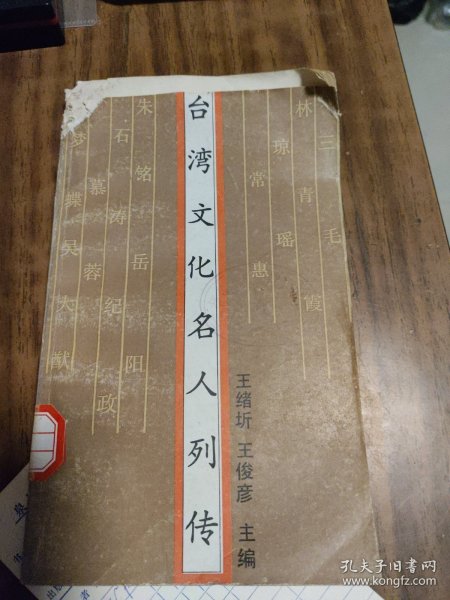 三毛
林青霞
琼瑶
常惠
台湾文化名人列传
王绪圻 王俊彦 主编
朱铭 岳阳
石涛 纪政
慕蓉
梦蝶 吴大猷
孔夫子旧书网
www.kongfz.com